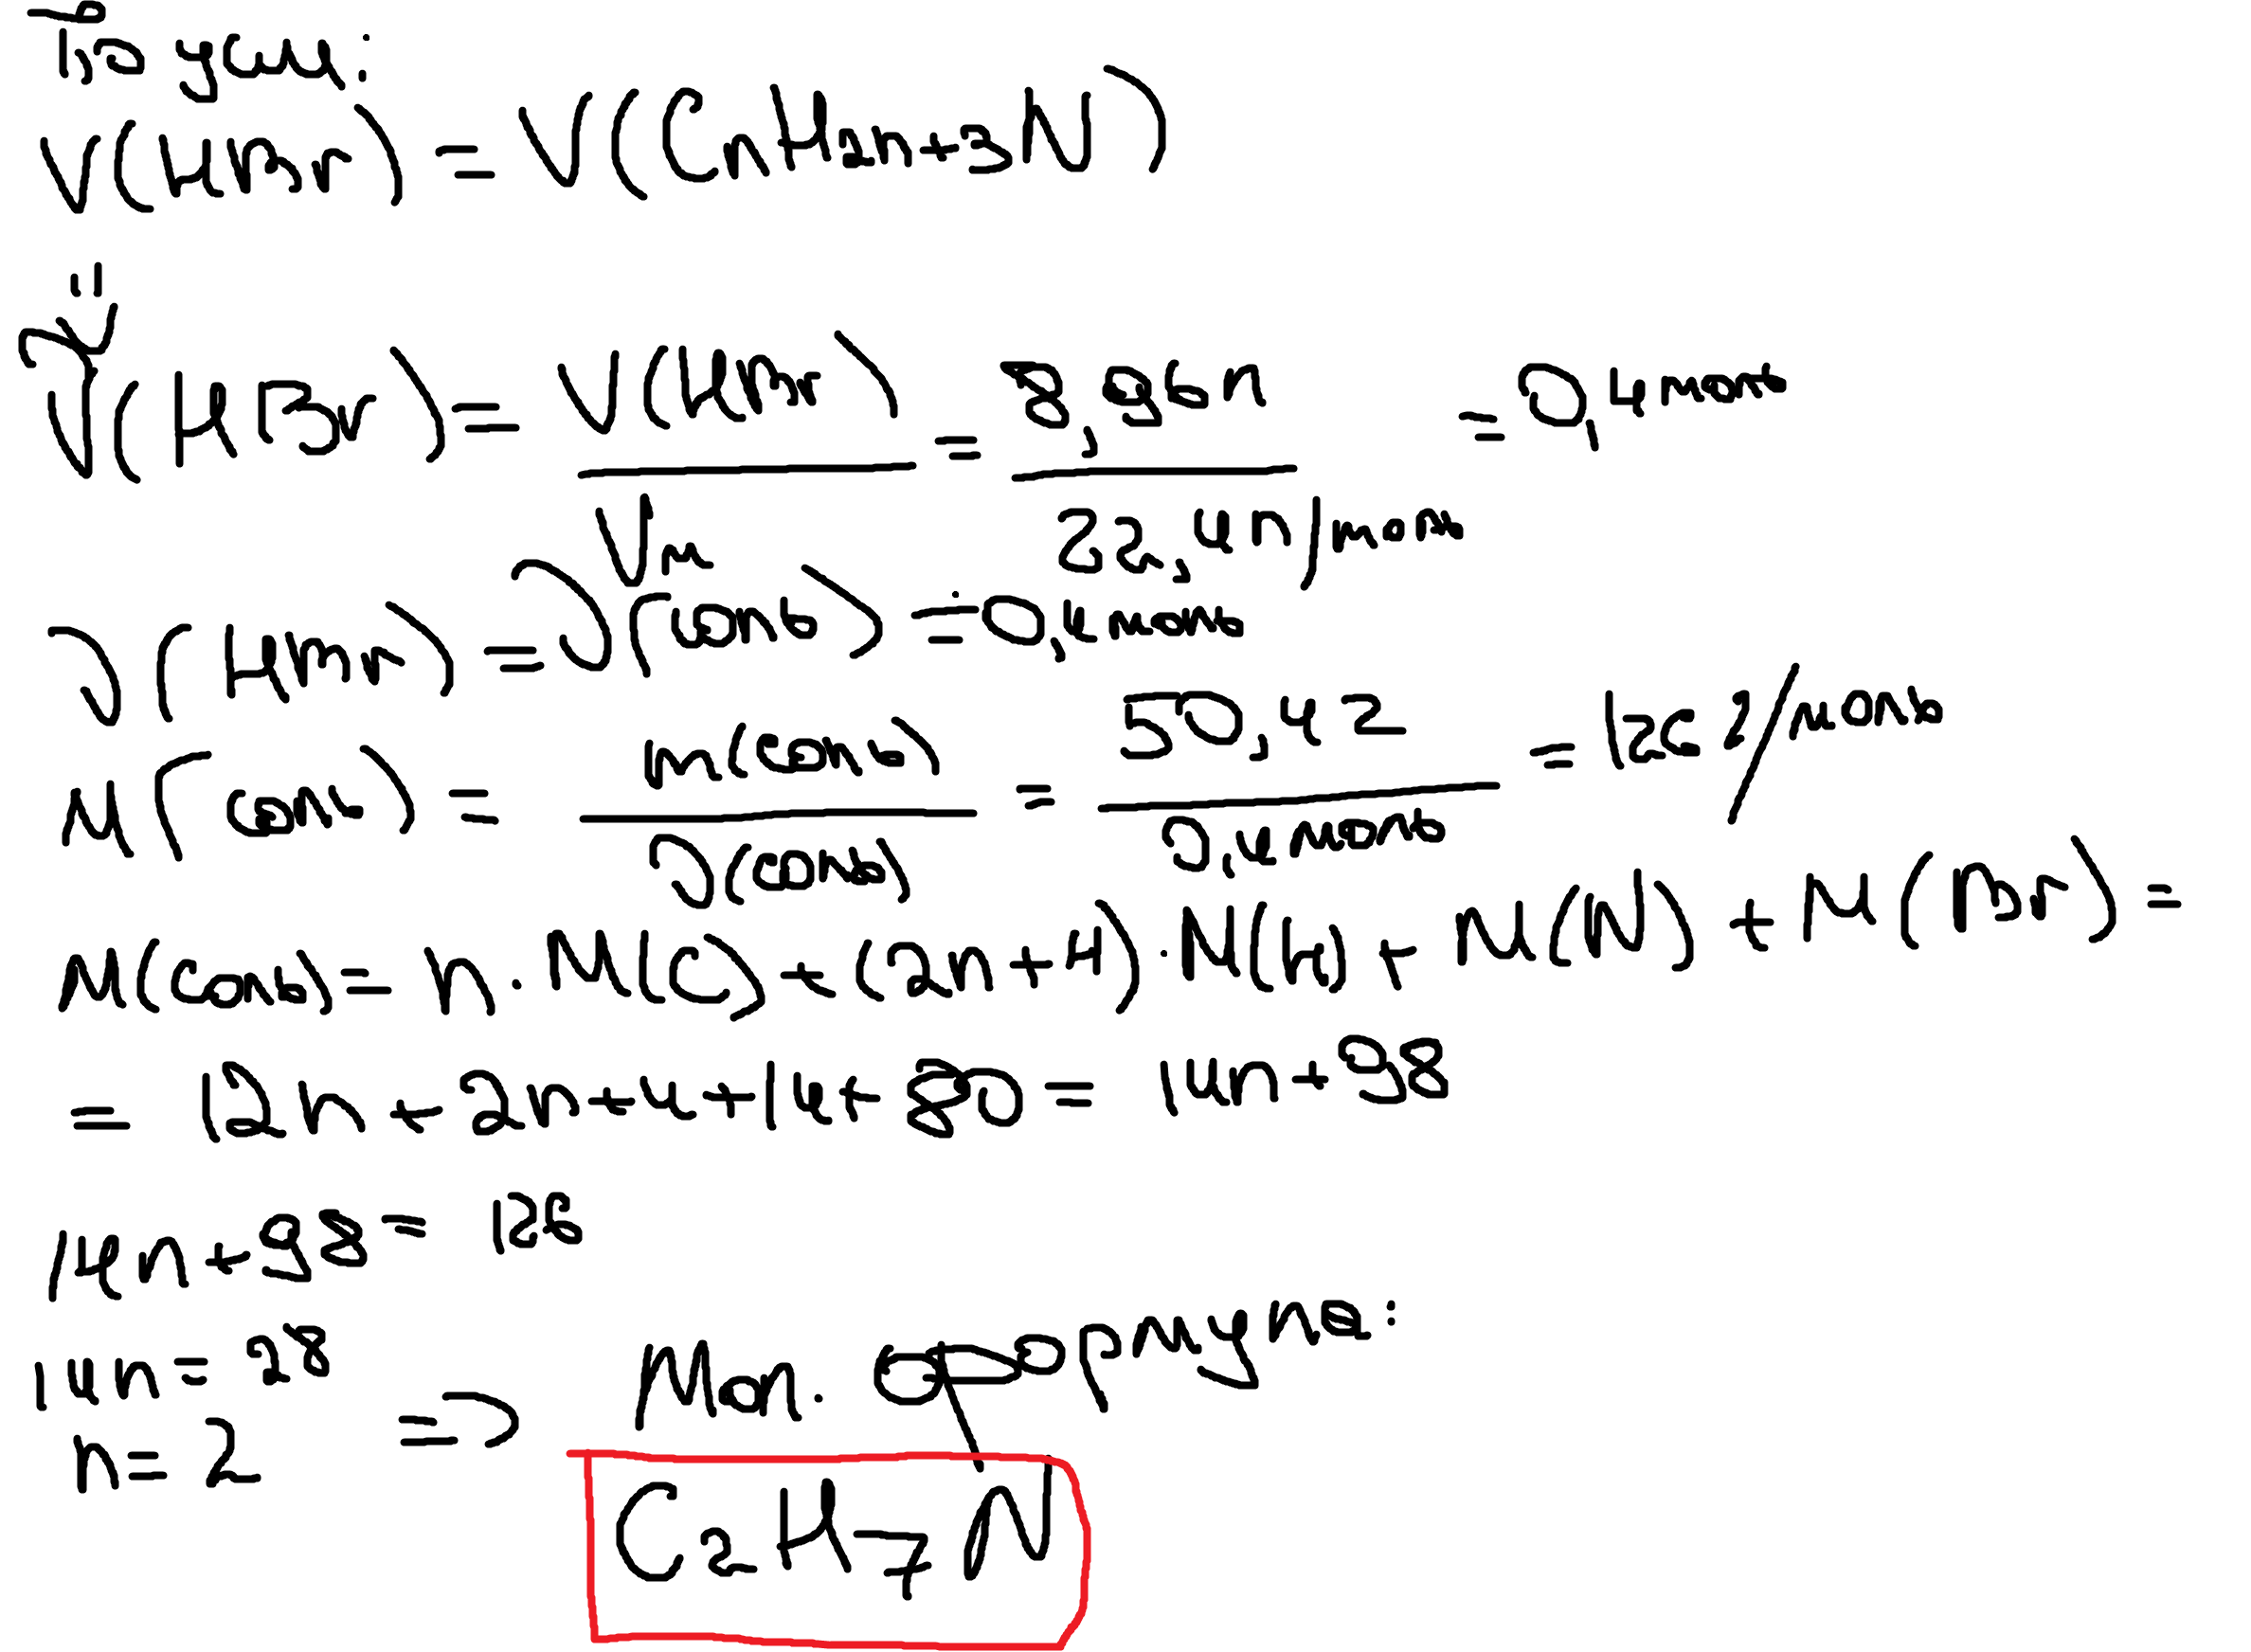 По усл:
V(HBr) = V(CnH2n+3N)
ν(HBr) = V(HBr) / Vm = 8,96л / 22,4л/моль = 0,4моль
ν(HBr) = ν(соль) = 0,4моль
M(соль) = m(соль) / ν(соль) = 50,4г / 0,4моль = 126г/моль
M(соль) = n · M(C) + (2n+4) · M(H) + M(N) + M(Br) =
= 12n + 2n + 4 + 14 + 80 = 14n + 98
14n + 98 = 126
14n = 28
n = 2 => Мол. формула:
C2H7N